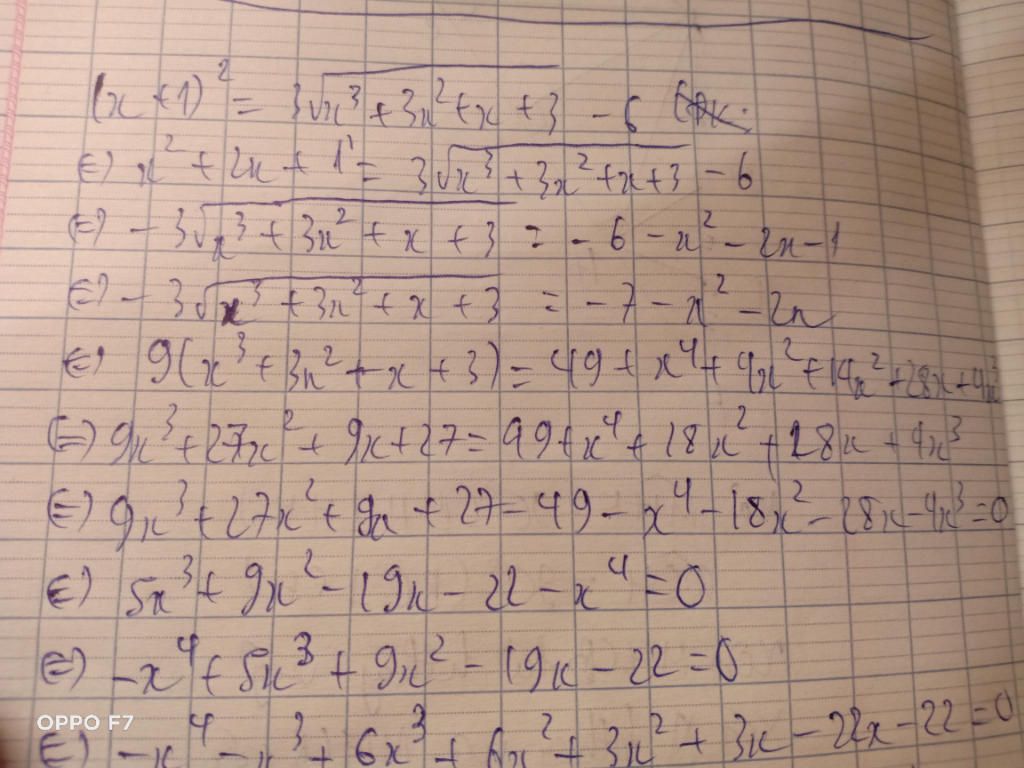 (x+1)² = 3√(x³+3x²+x+3) - 6
⇔) x² + 2x + 1 = 3√(x³+3x²+x+3) - 6
⇔) -3√(x³+3x²+x+3) = -6 - x² - 2x - 1
⇔) -3√(x³+3x²+x+3) = -7 - x² - 2x
⇔) 9(x³+3x²+x+3) = 49 + x⁴ + 4x² + 14x² + 28x + 4x³
⇔) 9x³ + 27x² + 9x + 27 = 49 + x⁴ + 18x² + 28x + 4x³
⇔) 9x³ + 27x² + 9x + 27 - 49 - x⁴ - 18x² - 28x - 4x³ = 0
⇔) 5x³ + 9x² - 19x - 22 - x⁴ = 0
⇔) -x⁴ + 5x³ + 9x² - 19x - 22 = 0
⇔) -x⁴ - x³ + 6x³ + 6x² + 3x² + 3x - 22x - 22 = 0
OPPO F7